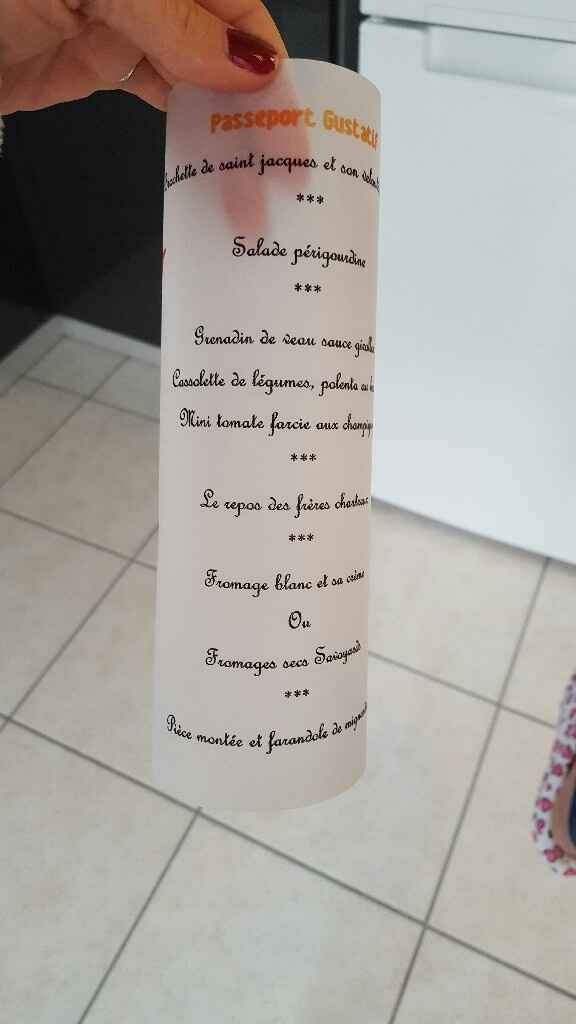 Passeport Gustatif
de saint jacques et son
***
Salade périgourdine
***
Grenadin de veau sauce
Cassolette de légumes, polenta au
Mini tomate farcie aux
***
Le repos des frères chartreux
***
Fromage blanc et sa crème
Ou
Fromages secs Savoyards
***
Pièce montée et farandole de